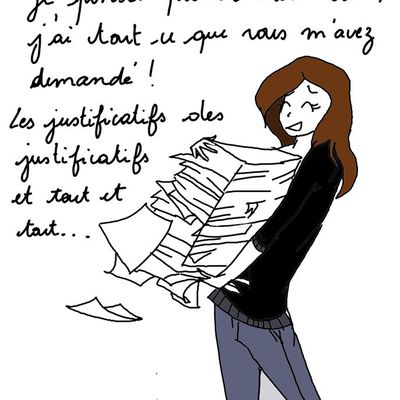 j'ai tout ce que vous m'avez
demandé !
Les justificatifs des
justificatifs
et tout et
tout...